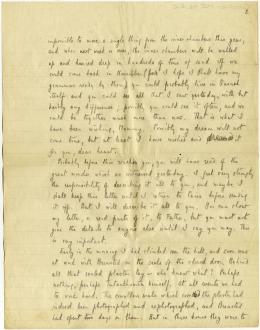 2
impossible to move a single thing from the inner chambers this year,
and when next week is over, the inner chambers will be walled
up and buried deep in hundreds of tons of sand. If we
could come back in November (but I hope I shall have my
grammar ready by then) you could probably live in Daressi
itself and you could see all that I saw yesterday, with but
hardly any difference; possibly you could see it often, and we
could be together much more than now. That is what I
have been wishing, Mummy. Possibly my dream will not
come true, but at least I have wished and it
for you, dear heart.
Probably before this reaches you, you will have read of the
great marvel which we witnessed yesterday. I feel very strongly
the responsibility of describing it all to you, and maybe I
shall keep this letter until I return to Cairo before sending
it off. But I will describe it all to you. You may show
my letter, or read parts of it, to Father, but you must not
give the details to anyone else until I say you may. This
is very important.
Early in the morning I had climbed over the hill, and even now
at work with Burnett on the seals of the closed door. Behind
all that sealed plaster lay - who knew what? Perhaps
nothing, perhaps Tutankhamun himself. At all events we had
to work hard. The countless seals which covered the plaster had
indeed been photographed and cyclographed, and Breasted
had spent two days on them. But in three hours they were to